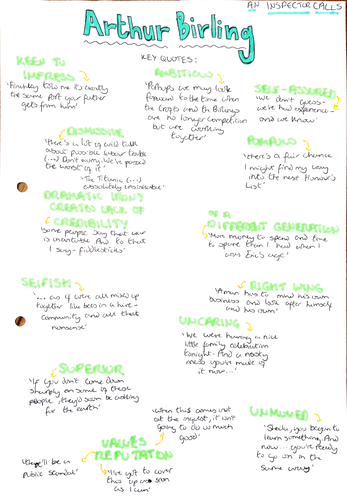 AN INSPECTOR CALLS
Arthur Birling
KEY QUOTES:
KEEN TO
IMPRESS
'Finchley told me it's exactly
the same port your father
gets from him'
AMBITIOUS
'Perhaps we may look
forward to the time when
the Crofts and the Birlings
are no longer competing
but are working
together'
SELF-ASSURED
'We don't guess-
we've had experience-
and we know'
DISMISSIVE
'there's a lot of wild talk
about possible labour trouble
(...) Don't worry. We've passed
the worst of it'
'The Titanic (...)
absolutely unsinkable'
POMPOUS
'there's a fair chance
I might find my way
into the next Honour's
List'
DRAMATIC IRONY
CREATES LACK OF
CREDIBILITY
'Some people say that war
is inevitable. And to that
I say - fiddlesticks'
OF A
DIFFERENT GENERATION
'More money to spend and time
to spare than I had when I
was Eric's age'
SELFISH
'... as if we were all mixed up
together like bees in a hive -
community and all that
nonsense'
RIGHT WING
'A man has to mind his own
business and look after himself
and his own'
UNCARING
'We were having a nice
little family celebration
tonight. And a nasty
mess you've made of
it now...'
SUPERIOR
'If you don't come down
sharply on some of these
people, they'd soon be asking
for the earth'
'When this comes out
at the inquest, it isn't
going to do us much
good'
UNMOVED
'Sheila, you begin to
learn something. And
now... you're ready
to go on in the
same way'
VALUES
REPUTATION
'there'll be a
public scandal'
'I've got to cover
this up as soon
as I can'